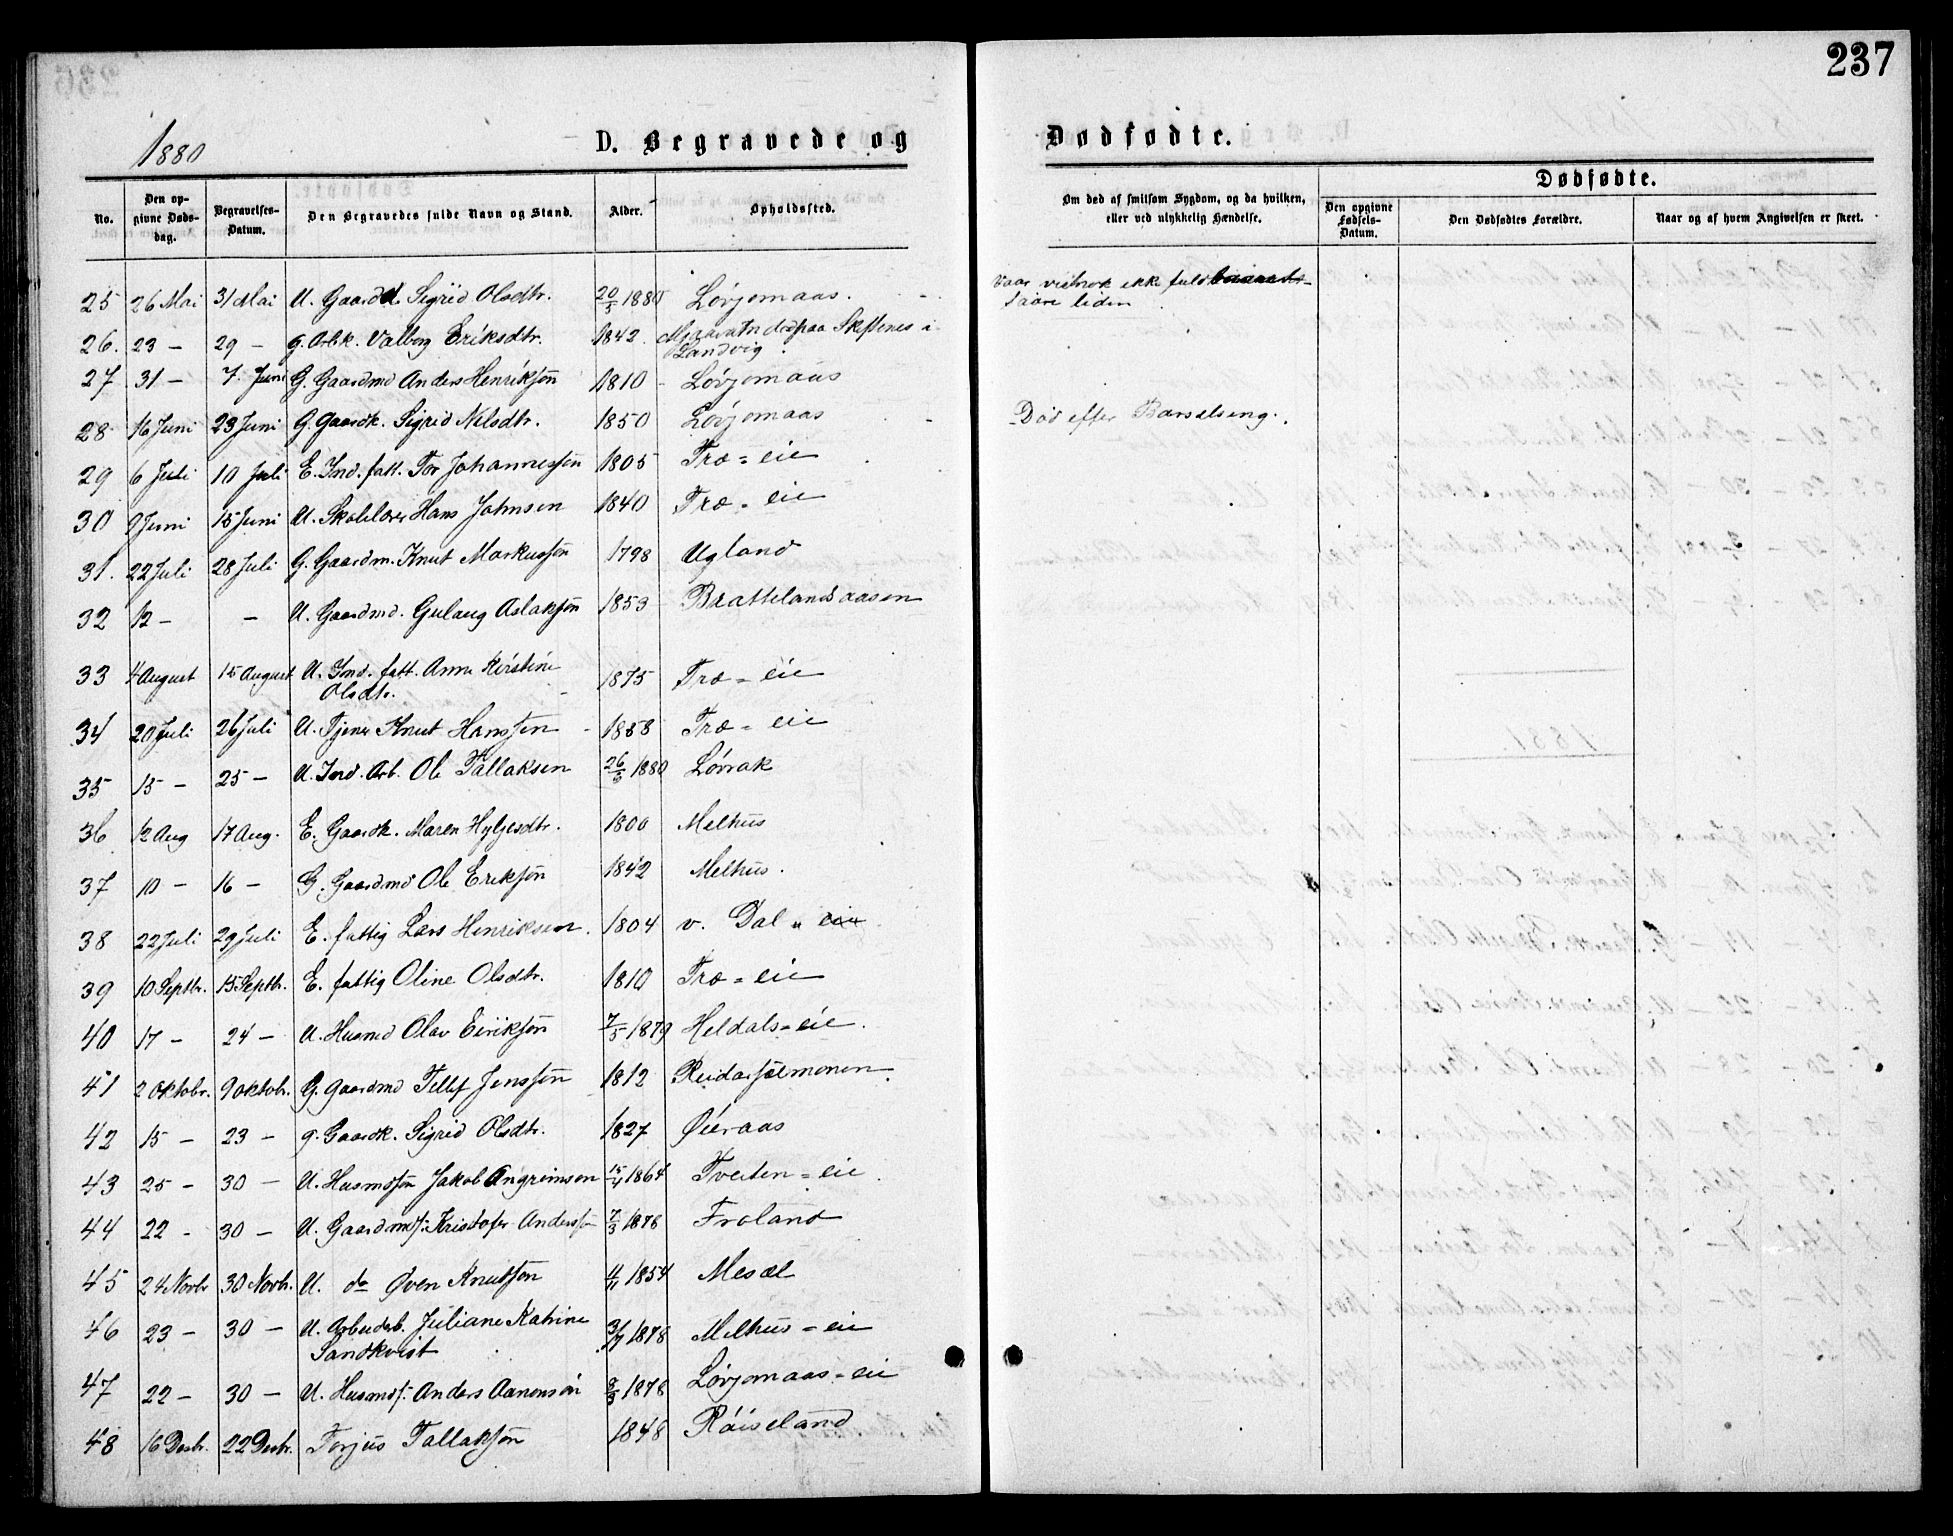 237
1880
D. Begravede og Dødfødte.
No. Den opgivne Dødsdag. Begravelses-Datum. Den Begravedes fulde Navn og Stand. Alder. Opholdssted. Om død af smitsom Sygdom, og da hvilken, eller ved ulykkelig Hændelse. Dødfødte.
Den opgivne Fødsels-Datum. Den Dødfødtes Forældre. Naar og af hvem Angivelsen er skeet.
25 26 Mai 31 Mai U. Gaardd. Sigrid Olsdtr. 20/5 1880 Løvjomaas. Vaar vistnok ikke fuld
saare liden
26. 23 - 29 - g. Arbk. Valborg Eriksdtr. 1842 død paa Skiftenes i
Landvig.
27 31 - 7. Juni G. Gaardmd Anders Henriksøn 1810 - Løvjomaas
28 16 Juni 23 Juni G. Gaardk. Sigrid Nilsdtr. 1850 Løvjomaas Død efter Barselseng.
29 6 Juli 10 Juli E. Ind. fatt. Tor Johannessøn 1805 Træ = eie
30 9 Juni 15 Juni U. Skolelærer Hans Johnsen 1840 Træ = eie
31. 22 Juli 28 Juli G. Gaardm. Knut Markussøn 1798 Ugland
32 12 - - U. Gaardmd. Gulaug Aslaksøn 1853 Brattelandsaasen
33 4 August 15 August U. Ind. fatt. Anne Kirstine 1875 Træ = eie
Olsdtr.
34 20 Juli 26 Juli U. Tjener Knut Hanssen 1858 Træ = eie
35 15 - 25 - U. Ind. Arb. Ole Tallaksen 26/6 1880 Løvrak
36 12 Aug 17 Aug. E. Gaardk. Maren Hylgesdtr. 1800 Melhus
37 10 - 16 - G. Gaardmd Ole Eriksøn 1842 Melhus.
38 22 Juli 29 Juli E. fattig Lars Henriksen. 1804 v. Dal = eie
39 10 Septbr. 15 Septbr. E. fattig Oline Olsdtr. 1810 Træ = eie
40 17 - 24 - U. Husmd Olav Eiriksøn 7/5 1879 Heldals = eie.
41 2 Oktobr. 9 Oktobr. G. Gaardmd Tellef Jenssøn 1812 Reidarsølmonen.
42 15 - 23 - g. Gaardk. Sigrid Olsdtr. 1827 Øieraas
43 25 - 30 - U. Husmdsøn Jakob Angrimsen 15/4 1864 Tveiten = eie
44 22 - 30 - U. Gaardmds: Kristofer Anderssøn 7/3 1878 Froland
45 24 Novbr 30 Novbr. U. do Øven Knutsøn 4/11 1854 Mesæl
46 23 - 30 - U. Arbeidsb. Juliane Katrine 31/7 1878 Melhus = eie
Sandkvist
47 22 - 30 - U. Husmds: Anders Aanonsøn 8/3 1878 Løvjomaas = eie
48 16 Decbr. 22 Decbr. Torjus Tallaksøn 1848 Røiseland